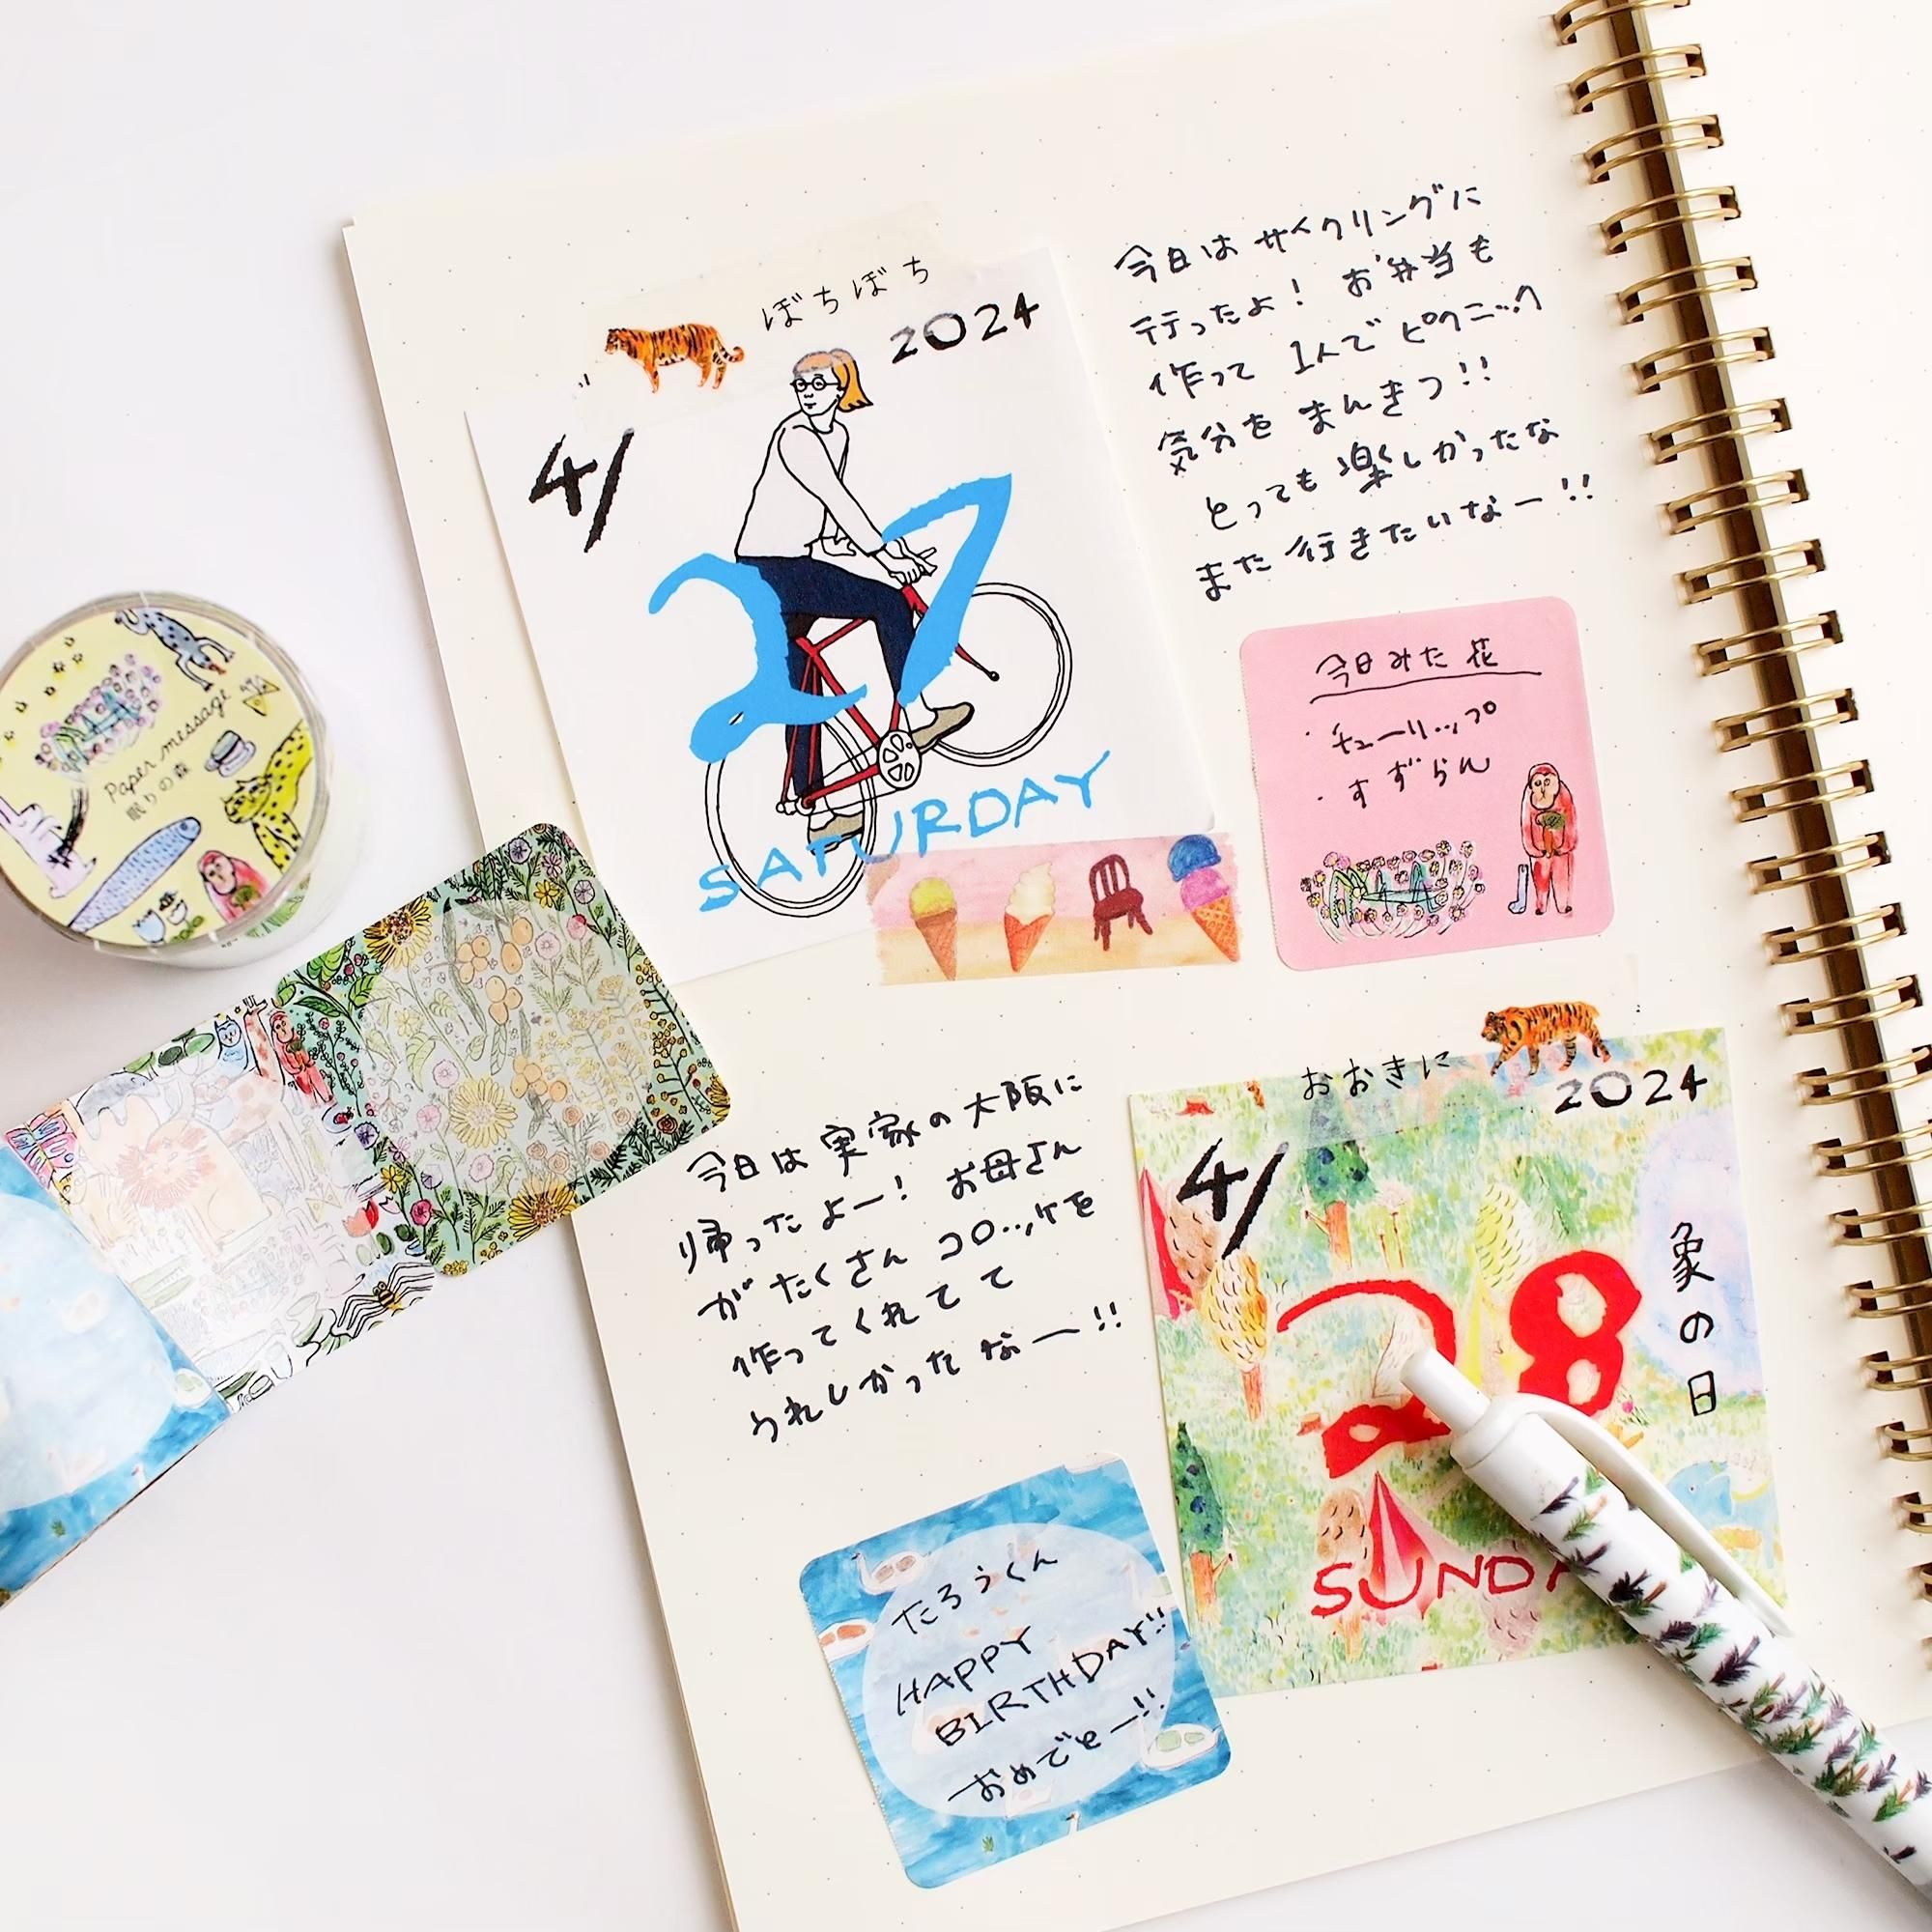 ぼちぼち
2024
4/
27
SATURDAY
今日は サイクリングに
行ったよ! お弁当も
作って 1人で ピクニック
気分を まんきつ!!
とっても 楽しかったな
また 行きたいなー!!
今日みた 花
・チューリップ
・すずらん
Paper message
眠りの森
今日は 実家の大阪に
帰ったよー! お母さん
が たくさん コロッケを
作ってくれてて
うれしかったなー!!
おおきに
2024
4/
28
象の日
SUNDA
たろうくん
HAPPY
BIRTHDAY!!
おめでとー!!